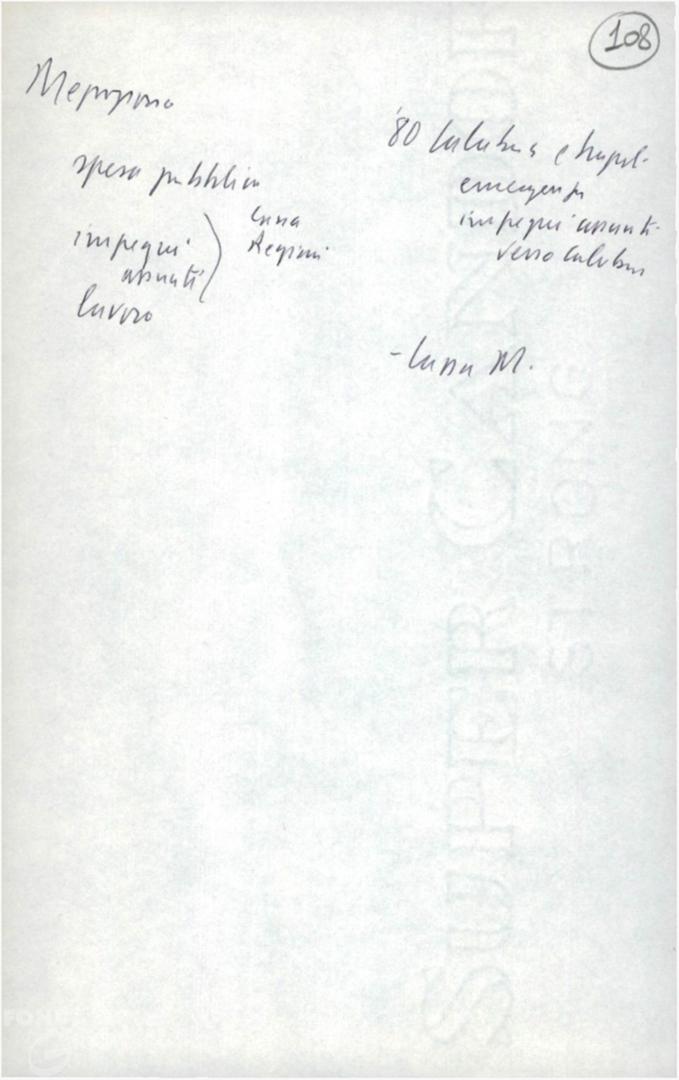 108
Mezzogiorno
spesa pubblica
impegni
assunti
lavoro
Cassa
Regioni
'80 Calabria e Napoli
emergenza
impegni assunti
verso Calabria
- Cassa M.
SUPER CANDOR
STRONG